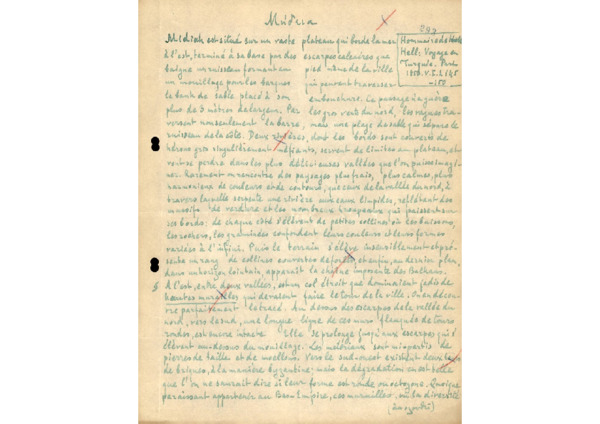 Médiea
249
Midiah est situé sur un vaste plateau qui borde la mer
Hommaire de Hell: Voyage en Turquie. Paris 1850. V.I. 145 -158
à l'est, terminé à sa base par des escarpes calcaires que
baigne un ruisseau formant au pied même de la ville
un mouillage pour les barques qui peuvent traverser
le banc de sable placé à son embouchure. Le passage n'a guère
plus de 3 mètres de largeur. Par les gros vents du nord, les vagues tra-
versent non seulement la barre, mais une plage de sable qui sépare le
ruisseau de la côte. Deux rivières, dont les bords sont couverts de
hérons gris singulièrement défiants, servent de limites au plateau, et
vont se perdre dans les plus délicieuses vallées que l'on puisse imagi-
ner. Rarement on rencontre des paysages plus frais, plus calmes, plus
harmonieux de couleurs et de contours, que ceux de la vallée du nord, à
travers laquelle serpente une rivière aux eaux limpides, reflétant des
massifs de verdure et les nombreux troupeaux qui paissent sur
ses bords: de chaque côté s'élèvent de petites collines où les buissons,
les rochers, les graminées confondent leurs couleurs et leurs formes
variées à l'infini. Puis le terrain s'élève insensiblement et pré-
sente un rang de collines couvertes de forêts, et enfin, au dernier plan,
dans un horizon lointain, apparaît la chaîne imposante des Balkans.
§ À l'est, entre deux vallées, est un col étroit que dominaient jadis de
hautes murailles qui devaient faire le tour de la ville. On en décou-
vre parfaitement le tracé. Au dessus des escarpes de la vallée du
nord, vers le sud, une longue ligne de ces murs flanqués de tours
rondes, est encore intacte. Elle se prolonge jusqu'aux escarpes qui s'
élèvent au dessus du mouillage. Les matériaux sont mi-partis de
pierres de taille et de moellons. Vers le sud-ouest existent deux tours
de briques, à la manière byzantine; mais la dégradation en est telle
que l'on ne saurait dire si leur forme est ronde ou octogone. Quoique
paraissant appartenir au Bas-Empire, ces murailles, où la diversité